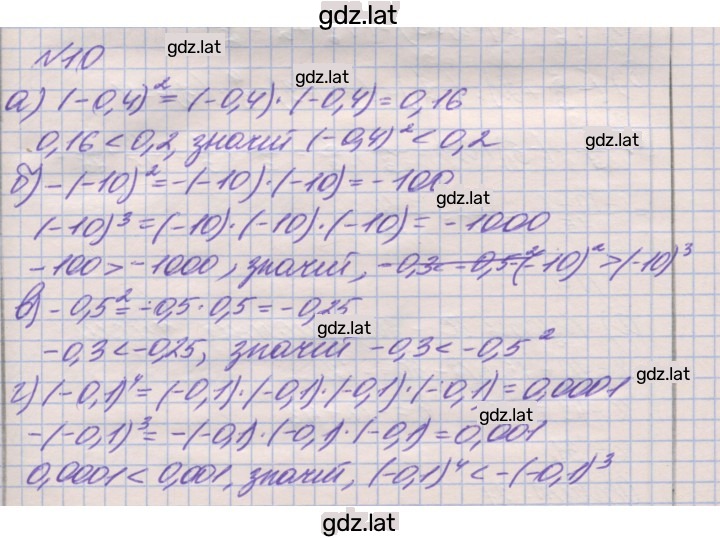 gdz.lat
№10
gdz.lat
gdz.lat
а) (-0,4)² = (-0,4)·(-0,4) = 0,16
0,16 < 0,2, значит (-0,4)² < 0,2
gdz.lat
б) -(-10)² = -(-10)·(-10) = -100
gdz.lat
(-10)³ = (-10)·(-10)·(-10) = -1000
-100 > -1000, значит, -0,3 < -0,5² -(-10)² > (-10)³
в) -0,5² = -0,5·0,5 = -0,25
gdz.lat
-0,3 < -0,25, значит -0,3 < -0,5²
gdz.lat
г) (-0,1)⁴ = (-0,1)·(-0,1)·(-0,1)·(-0,1) = 0,0001
gdz.lat
-(-0,1)³ = -(-0,1)·(-0,1)·(-0,1) = 0,001
0,0001 < 0,001, значит, (-0,1)⁴ < -(-0,1)³
gdz.lat